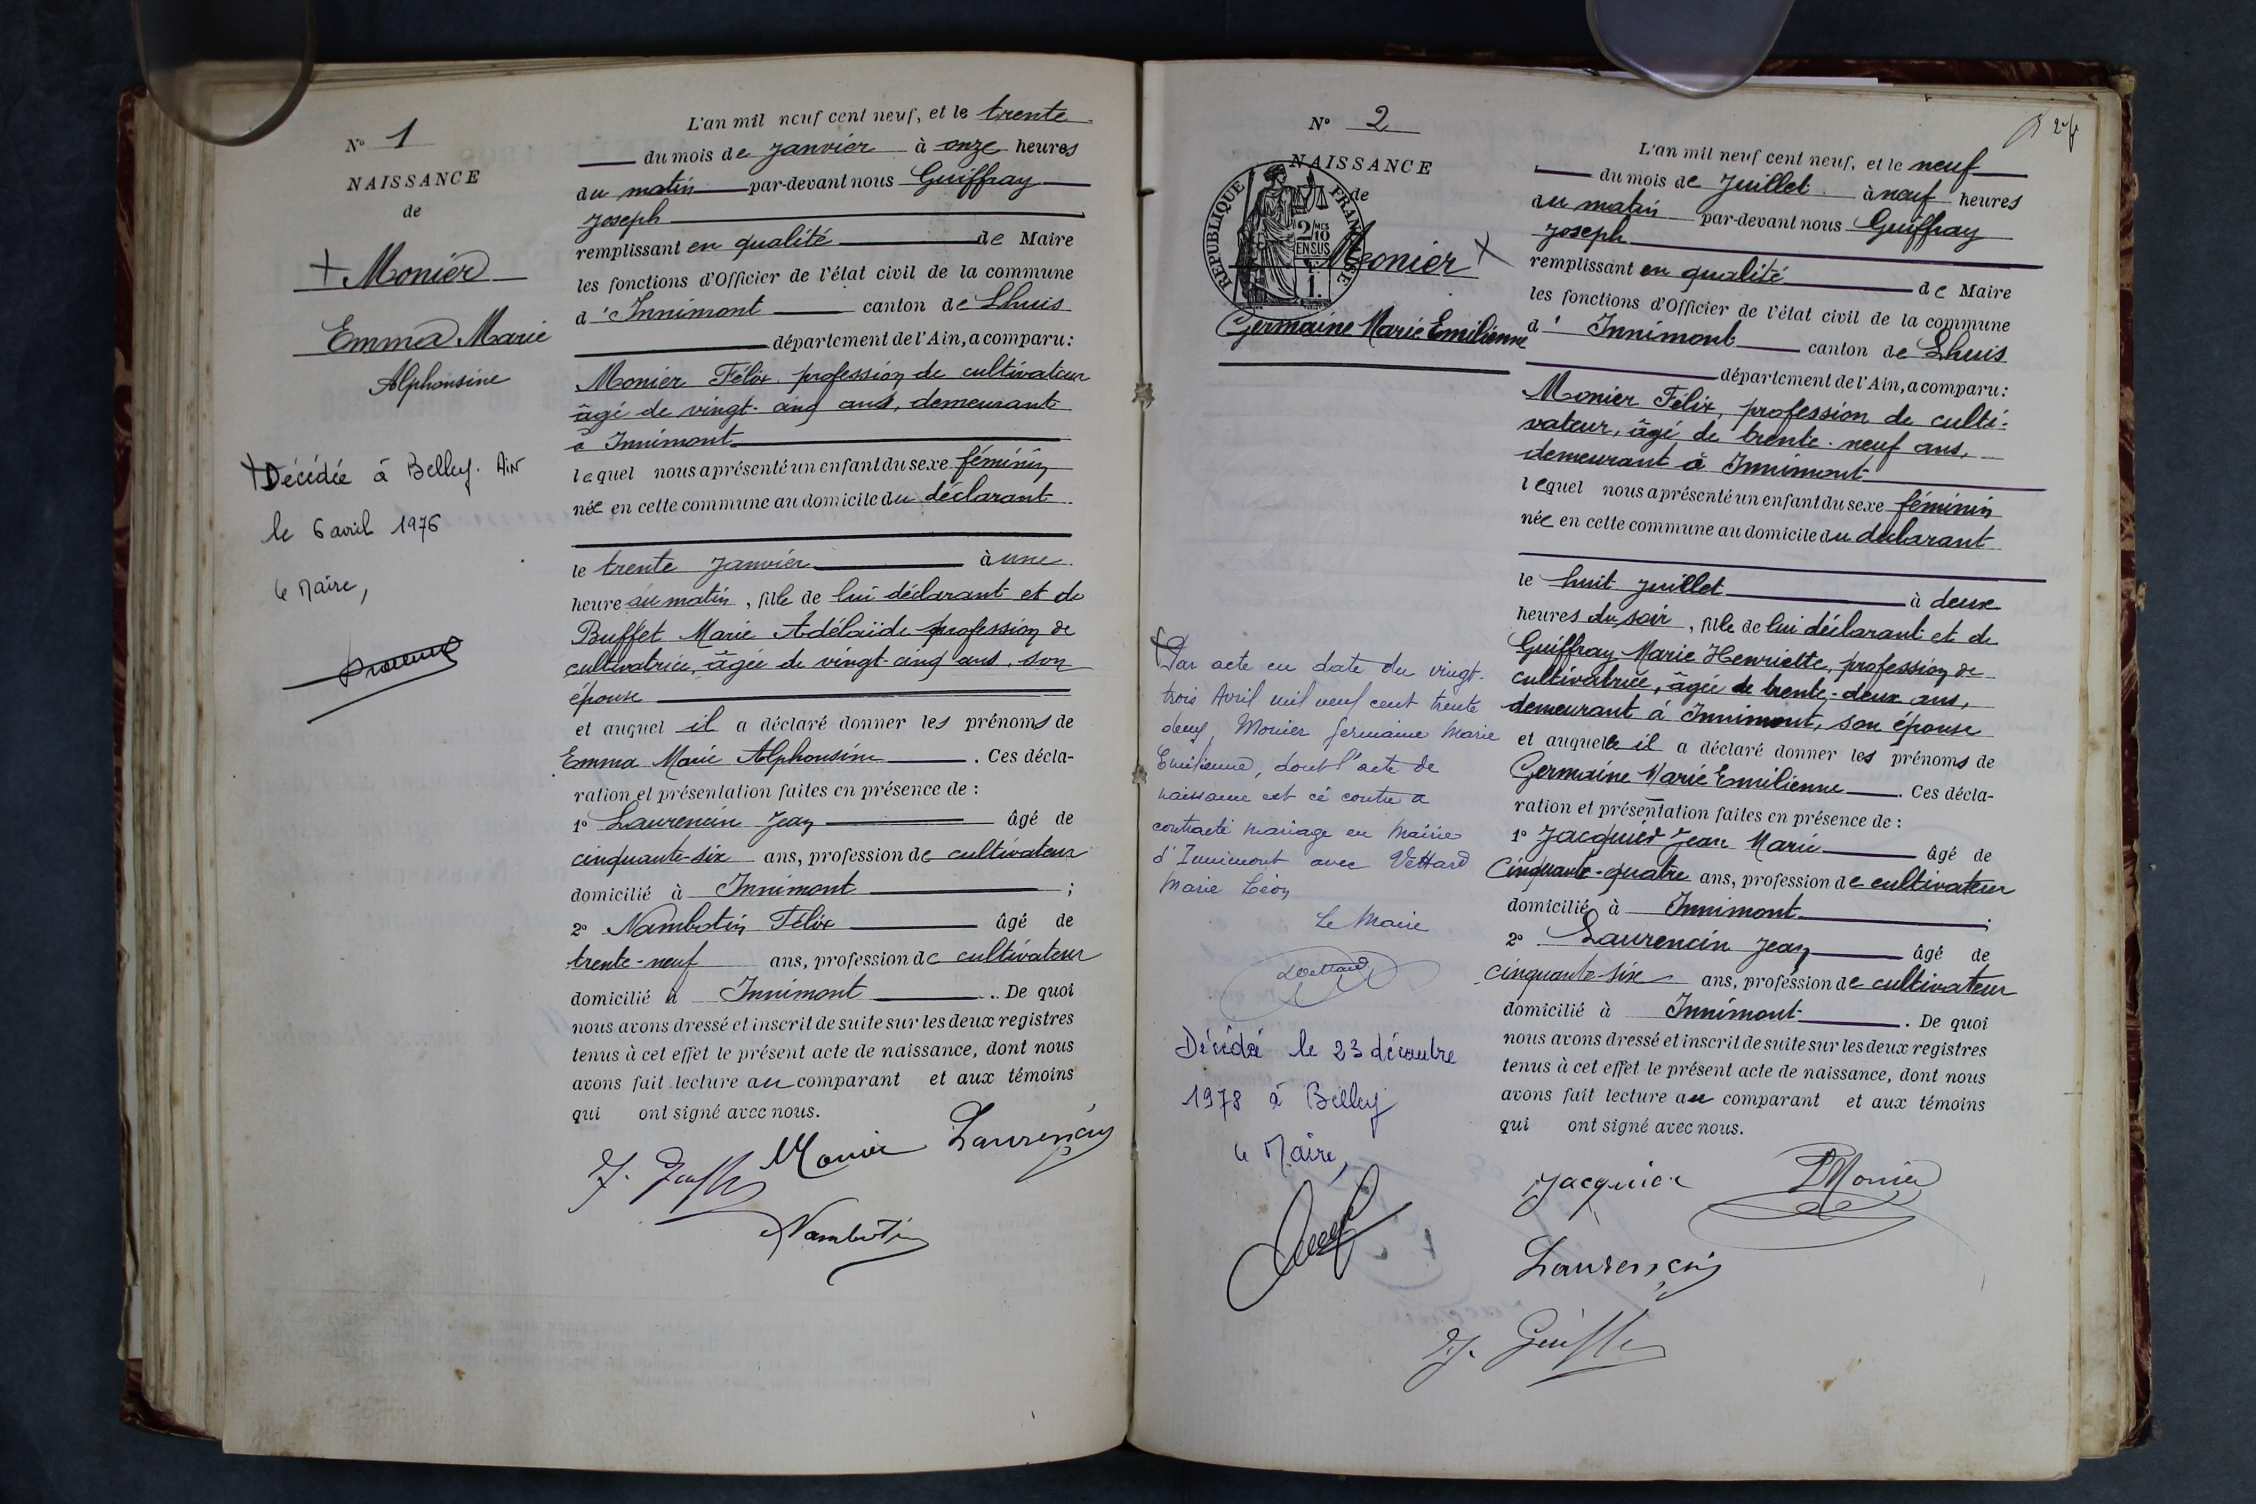 N° 1
NAISSANCE
de
+ Monier
Emma Marie
Alphonsine
+ Décédée à Belley. Ain
le 6 avril 1976
le Maire,
L'an mil neuf cent neuf, et le trente
du mois de Janvier à onze heures
du matin par-devant nous Guiffray
Joseph
remplissant en qualité de Maire
les fonctions d'Officier de l'état civil de la commune
d'Innimont canton de Lhuis
département de l'Ain, a comparu:
Monier Félix profession de cultivateur
âgé de vingt-cinq ans, demeurant
à Innimont
lequel nous a présenté un enfant du sexe féminin
née en cette commune au domicile du déclarant
le trente Janvier à une
heure du matin, fille de lui déclarant et de
Buffet Marie Adélaïde profession de
cultivatrice, âgée de vingt-cinq ans, son
épouse
et auquel il a déclaré donner les prénoms de
Emma Marie Alphonsine. Ces décla-
ration et présentation faites en présence de :
1° Laurencin Jean âgé de
cinquante-six ans, profession de cultivateur
domicilié à Innimont ;
2° Nambotin Félix âgé de
trente-neuf ans, profession de cultivateur
domicilié à Innimont. De quoi
nous avons dressé et inscrit de suite sur les deux registres
tenus à cet effet le présent acte de naissance, dont nous
avons fait lecture au comparant et aux témoins
qui ont signé avec nous.
Monier Laurencin
J. Guiffray
Nambotin
N° 2
NAISSANCE
de
REPUBLIQUE FRANÇAISE
2/10 MES
EN SUS
Monier +
Germaine Marie Emilienne
Par acte en date du vingt-
trois Avril mil neuf cent trente
deux, Monier Germaine Marie
Emilienne, dont l'acte de
naissance est ci contre a
contracté mariage en Mairie
d'Innimont avec Vettard
Marie Léon
Le Maire
LVettard
Décédée le 23 décembre
1978 à Belley
le Maire,
L'an mil neuf cent neuf, et le neuf
du mois de Juillet à neuf heures
du matin par-devant nous Guiffray
Joseph
remplissant en qualité de Maire
les fonctions d'Officier de l'état civil de la commune
d'Innimont canton de Lhuis
département de l'Ain, a comparu:
Monier Félix, profession de culti-
vateur, âgé de trente-neuf ans,
demeurant à Innimont
lequel nous a présenté un enfant du sexe féminin
née en cette commune au domicile du déclarant
le huit juillet à deux
heures du soir, fille de lui déclarant et de
Guiffray Marie Henriette, profession de
cultivatrice, âgée de trente-deux ans,
demeurant à Innimont, son épouse
et auquelle il a déclaré donner les prénoms de
Germaine Marie Emilienne. Ces décla-
ration et présentation faites en présence de :
1° Jacquier Jean Marie âgé de
Cinquante-quatre ans, profession de cultivateur
domicilié à Innimont ;
2° Laurencin Jean âgé de
cinquante-six ans, profession de cultivateur
domicilié à Innimont. De quoi
nous avons dressé et inscrit de suite sur les deux registres
tenus à cet effet le présent acte de naissance, dont nous
avons fait lecture au comparant et aux témoins
qui ont signé avec nous.
Jacquier Monier
Laurencin
J. Guiffray